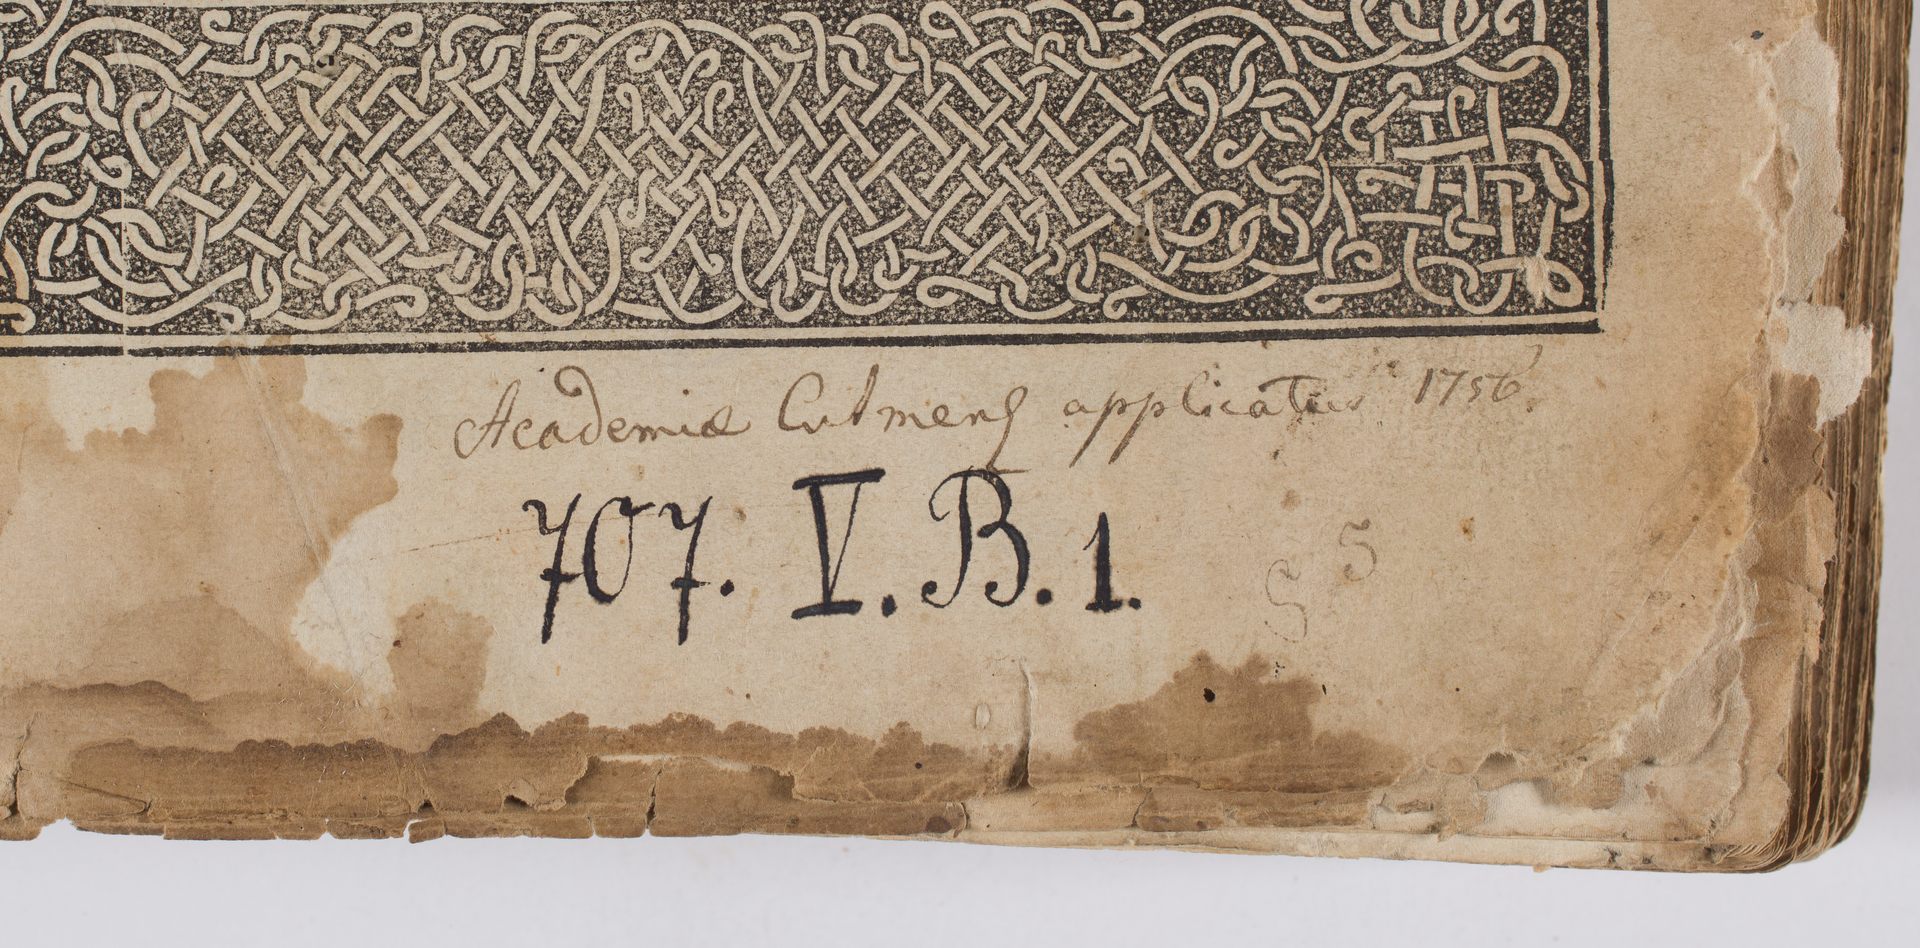 Academiæ Culmens applicatus 1756.
707. V. B. 1.
5